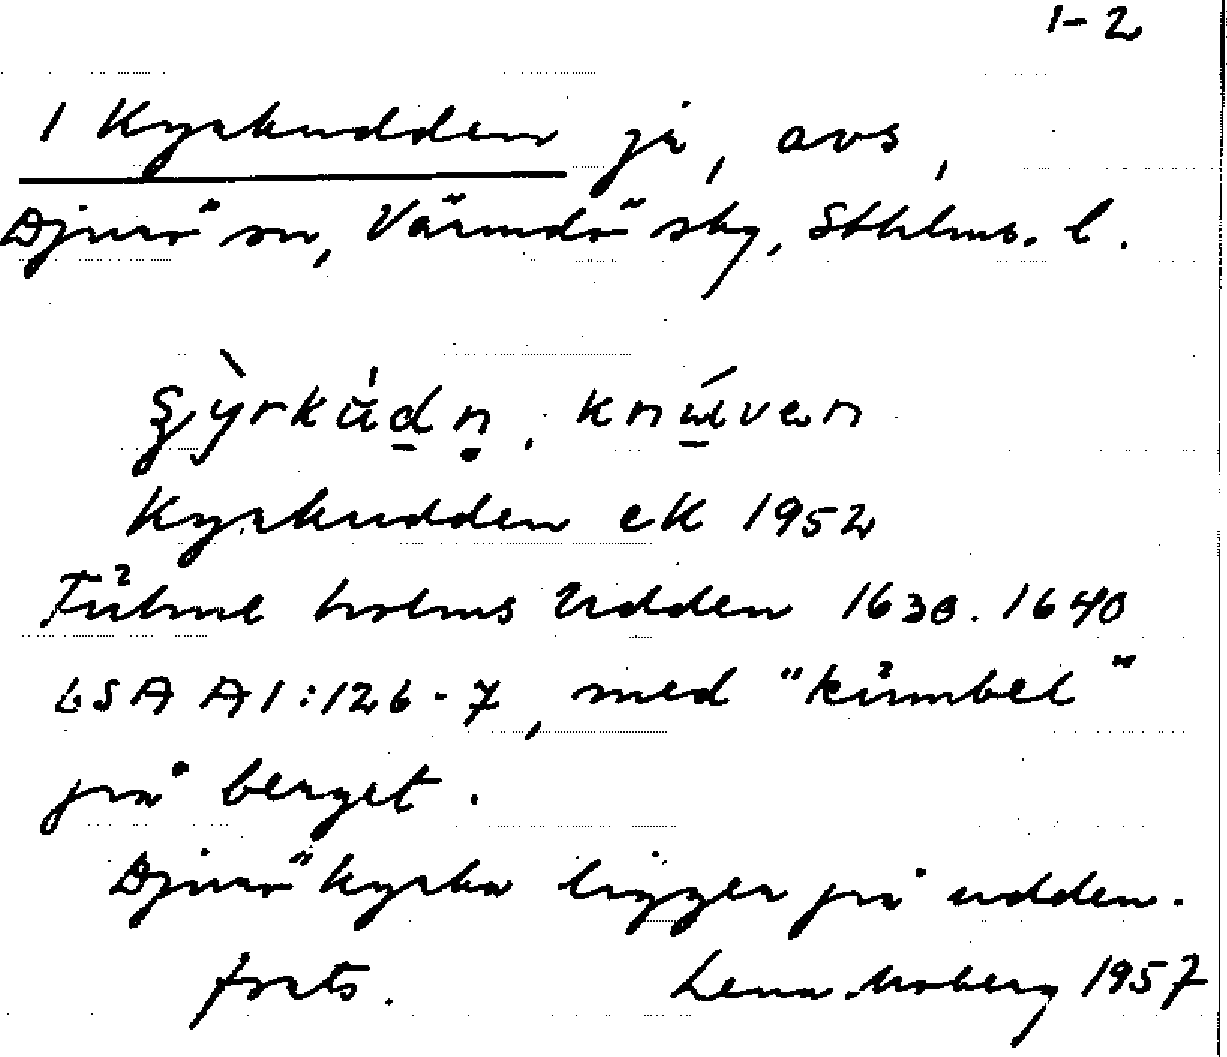 1-2
1 Kyrkudden på, avs,
Djurö sn, Värmdö sky, Sthlms. l.
knú̱ven
Kyrkudden ek 1952
holms Udden 1630. 1640
LSA A1:126-7, med "kůmbel"
på berget.
Djurö kyrka ligger på udden.
forts. Lena Moberg 1957